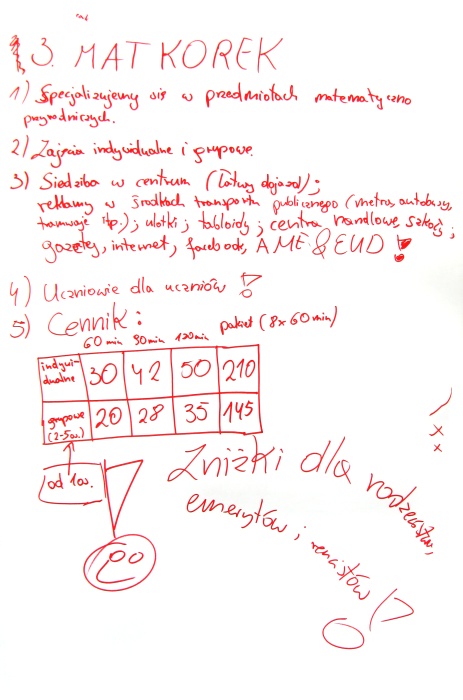 3. MATKOREK
1) Specjalizujemy się w przedmiotach matematyczno
przyrodniczych.
2) Zajęcia indywidualne i grupowe.
3) Siedziba w centrum (łatwy dojazd);
reklamy w środkach transportu publicznego (metra, autobusy,
tramwaje itp.); ulotki; tabloidy; centra handlowe, szkoły;
gazety, internet, facebook, AME & EUD!
4) Uczniowie dla uczniów!
5) Cennik:
60 min 90 min 120 min pakiet (8x60 min)
indywidualne 30 42 50 210
grupowe (2-5os.) 20 28 35 145
od 1os.
Zniżki dla rodzeństw,
emerytów i rencistów!